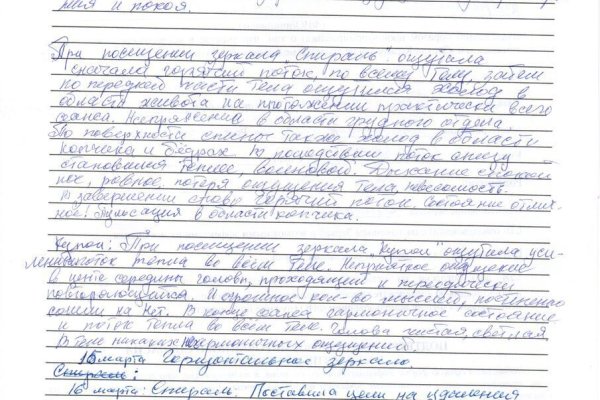 ния и покоя.
При посещении зеркала "Спираль" ощутила
сначала горячий поток, по всему телу, затем
по передней части тела ощущался холод в
области живота на протяжении практически всего
сеанса. Напряжение в области грудного отдела.
По поверхности спины также холод в области
копчика и бедрах. В последствии поток снизу
становился теплее, волновой. Дыхание спокой-
ное, ровное, потеря ощущения тела, невесомость.
В завершении снова горячий поток. Состояние отлич-
ное. Пульсация в области копчика.
Купол: При посещении зеркала "Купол" ощутила уси-
ление поток тепла во всём теле. Неприятное ощущение
в центре середины головы, проходящий и периодически
повторяющийся. И огромное кол-во мыслей, постепенно
сошли на нет. В конце сеанса гармоничное состояние
и поток тепла во всём теле. Голова чистая, светлая.
В теле никаких негармоничных ощущений.
15 марта Горизонтальное зеркало.
Спираль:
16 марта: Спираль. Поставила цели на